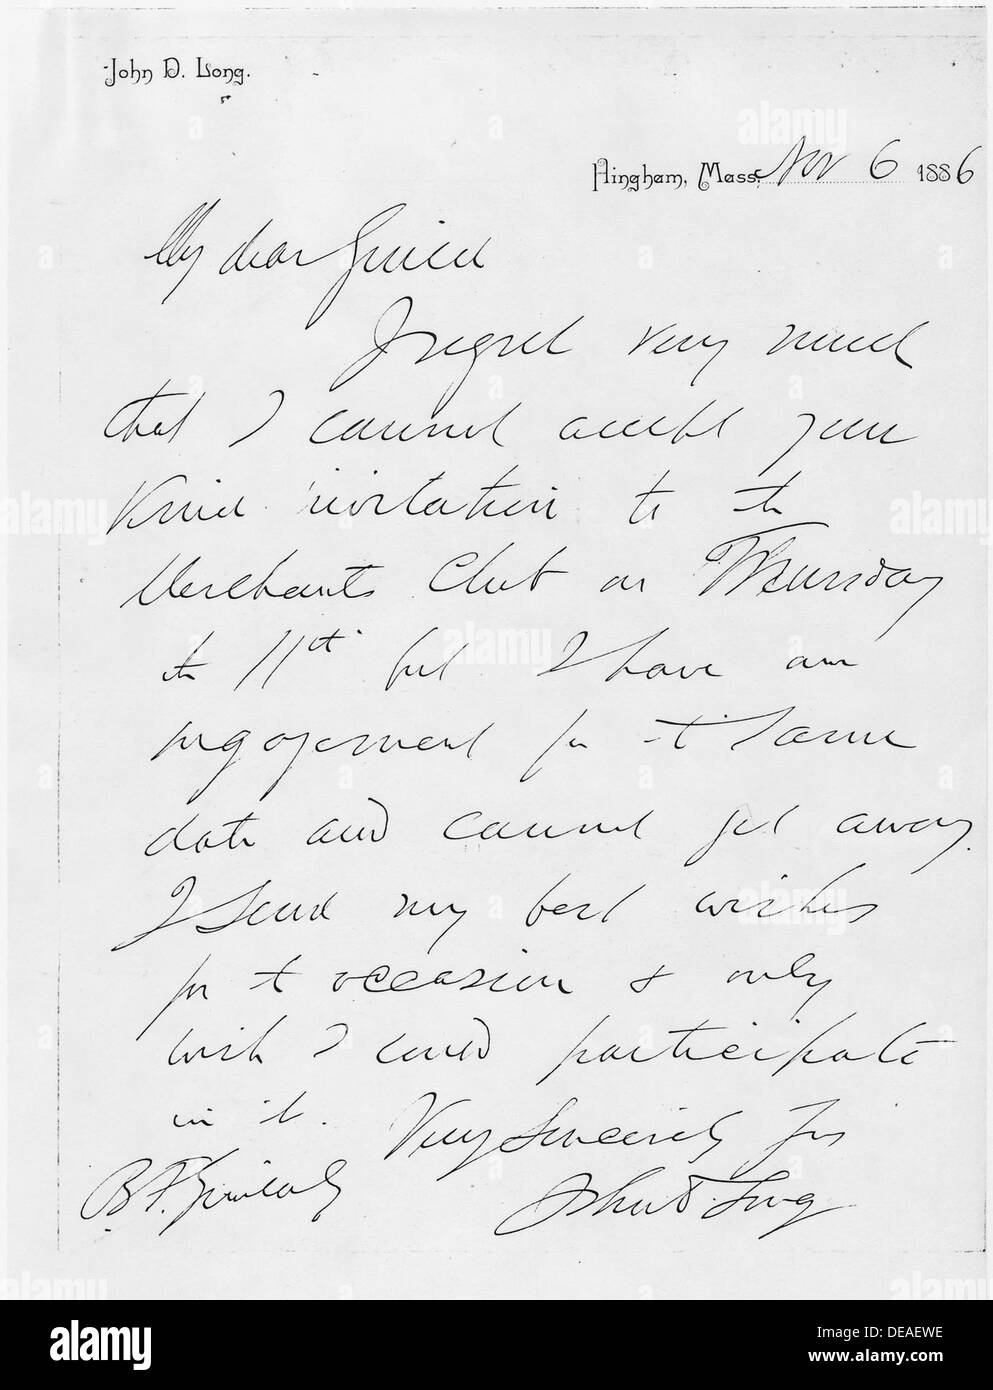 John D. Long.
Hingham, Mass. Nov 6 1886
My dear Guild
I regret very much
that I cannot accept your
kind invitation to the
Merchants Club on Thursday
the 11th but I have an
engagement for t same
date and cannot get away.
I send my best wishes
for t occasion & only
wish I could participate
in it. Very Sincerely Yrs
John D. Long
B. F. Guild
alamy
Image ID: DEAEWE
www.alamy.com